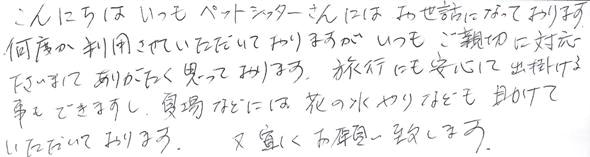 こんにちは いつも ペットシッターさんには お世話になっております
何度か利用させていただいておりますが いつも ご親切に対応
下さいまして ありがたく思っております. 旅行にも安心して出掛ける
事もできますし、夏場などには 花の水やりなども 助けて
いただいております. 又宜しくお願い致します.